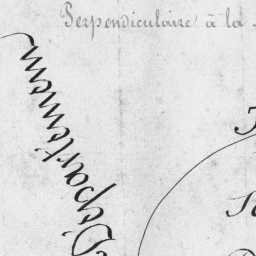 Perpendiculaire à la
Département